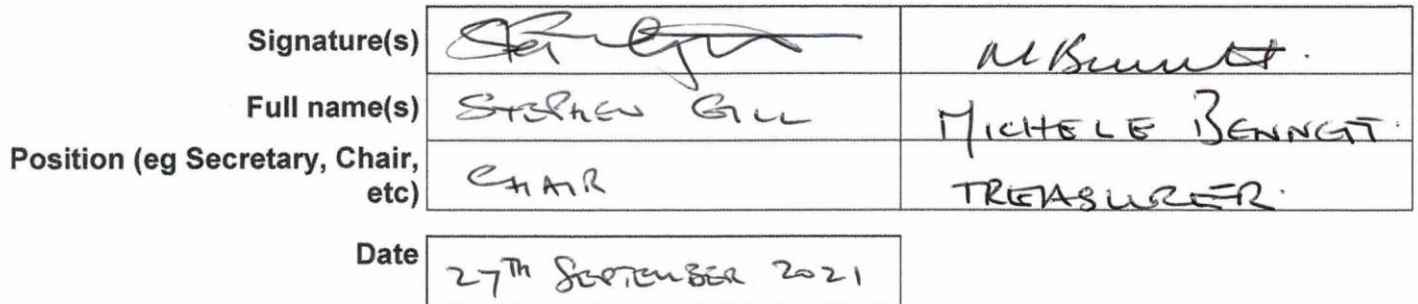 Signature(s) M Bennett.
Full name(s) STEPHEN GILL MICHELE BENNETT.
Position (eg Secretary, Chair,
etc) CHAIR TREASURER.
Date 27TH SEPTEMBER 2021